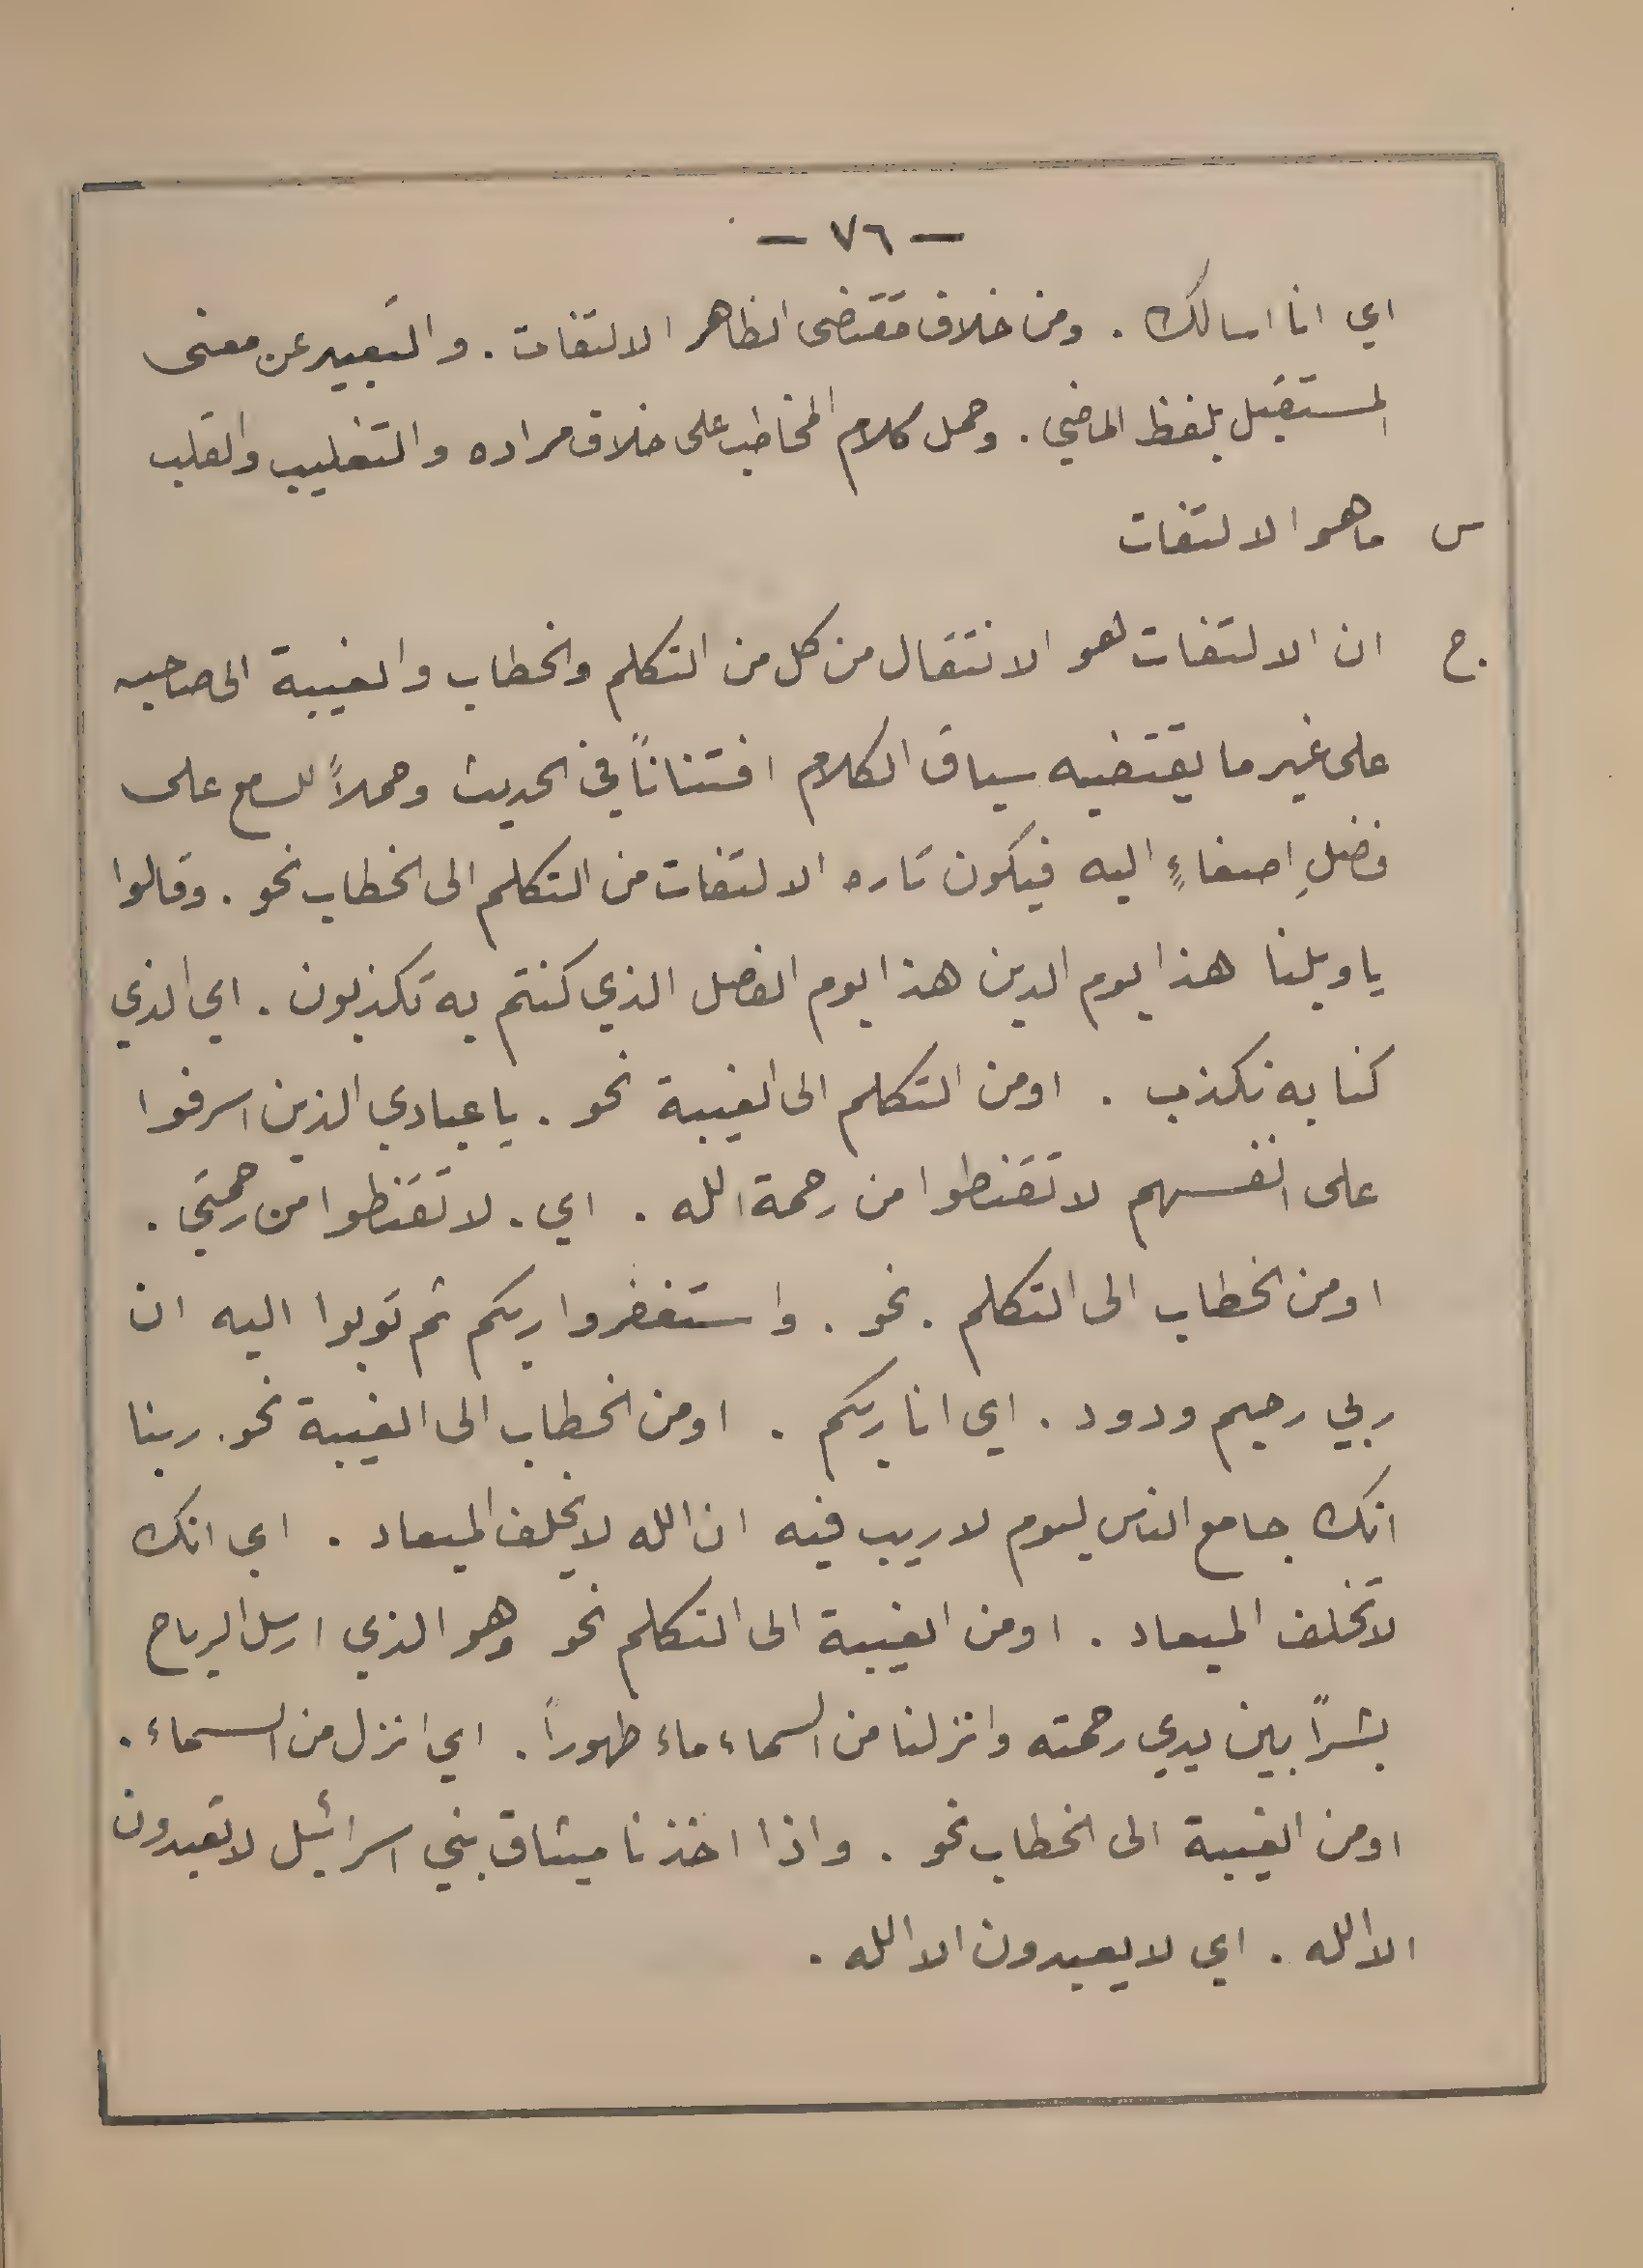 — ٧٦ —
اي انا اسالك . ومن خلاف مقتضى الظاهر الالتفات . والتعبير عن معنى
المستقبل بلفظ الماضي . وحمل كلام المخاطب على خلاف مراده والتغليب والقلب
س ما هو الالتفات
ج . ان الالتفات لهو الانتقال من كل من التكلم والخطاب والغيبة الى صاحبه
على غير ما يقتضيه سياق الكلام افتناناً في الحديث وحملاً للسامع على
فضلِ اصغاءٍ اليه فيكون تاره الالتفات من التكلم الى الخطاب نحو . وقالوا
يا ويلنا هذا يوم الدين هذا يوم الفصل الذي كنتم به تكذبون . اي الذي
كنا به نكذب . او من التكلم الى الغيبة نحو . يا عبادي الذين اسرفوا
على انفسهم لا تقنطوا من رحمة الله . اي . لا تقنطوا من رحمتي .
او من الخطاب الى التكلم . نحو . واستغفروا ربكم ثم توبوا اليه ان
ربي رحيم ودود . اي انا ربكم . او من الخطاب الى الغيبة نحو . ربنا
انك جامع الناس ليوم لا ريب فيه ان الله لا يخلف الميعاد . اي انك
لا تخلف الميعاد . او من الغيبة الى التكلم نحو وهو الذي ارسل الرياح
بشراً بين يدي رحمته وانزلنا من السماء ماء طهوراً . اي انزل من السماء .
او من الغيبة الى الخطاب نحو . واذا اخذنا ميثاق بني اسرائيل لا تعبدون
الا الله . اي لا يعبدون الا الله .